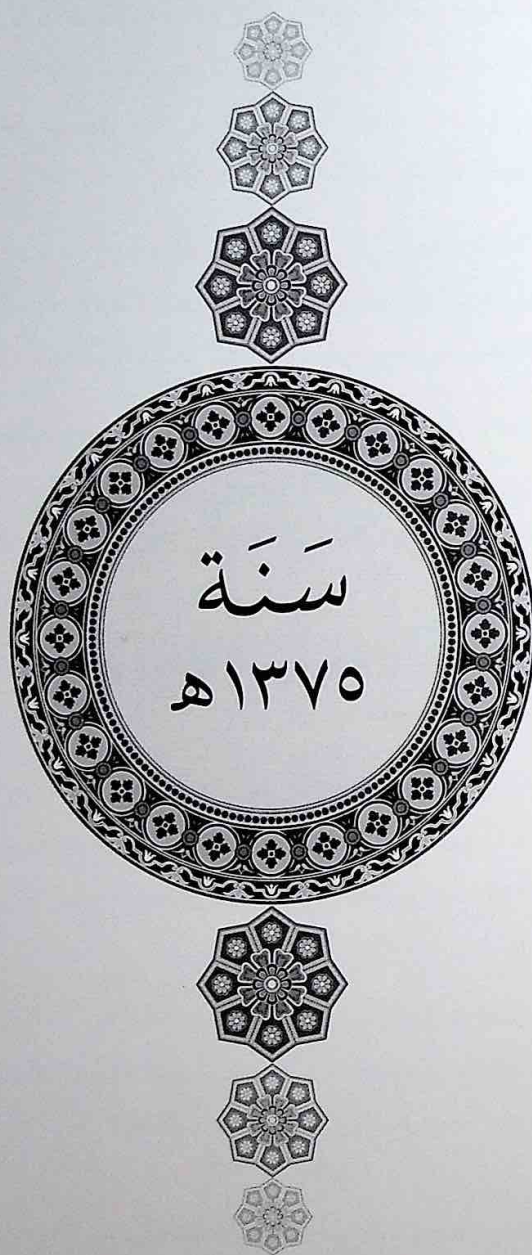 سَنَة
١٣٧٥ه